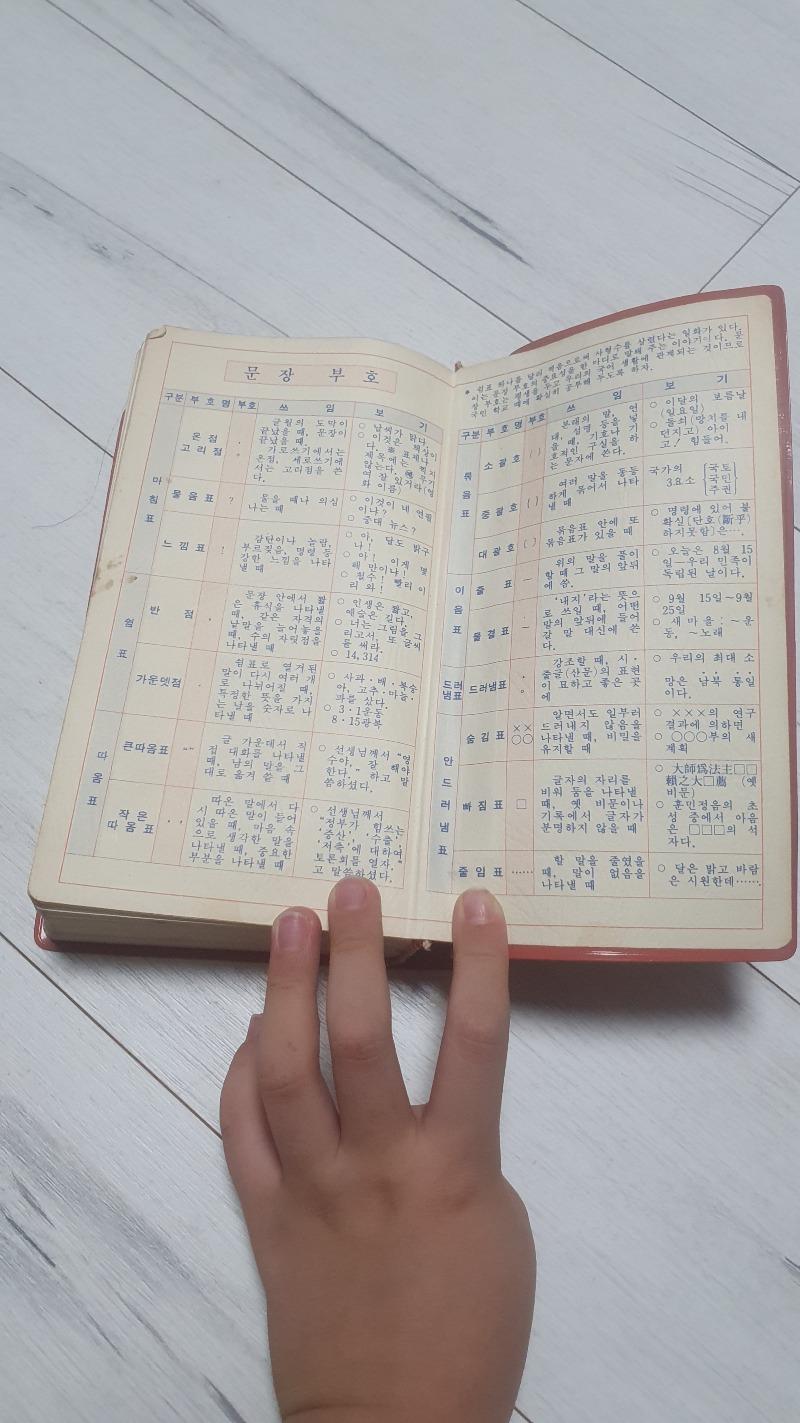 문장 부호
구분 부호명 부호 쓰임 보기
마침표
온점 고리점 . 。
글월의 도막이
끝났을 때, 문장이
끝났을 때.
가로쓰기에서는
온점, 세로쓰기에
서는 고리점을 쓴
다.
○ 날씨가 맑다.
○ 이것은 책상이
다. ※ 표제나
제목에는 찍지
않는다.
여 잘 있거라(영
화 이름)
물음표 ?
물을 때나 의심
나는 때
○ 이것이 네 연필
이냐?
○ 중대 뉴스?
느낌표 !
감탄이나 놀람,
부르짖음, 명령 등
강한 느낌을 나타
낼 때
○ 아, 달도 밝구
나!
○ 아! 이게 몇
해 만이냐!
○ 철수! 빨리 이
리 와!
쉼표
반점 ,
문장 안에서 짧
은 휴식을 나타낼
때, 같은 자격의
낱말을 늘어놓을
때, 수의 자릿점을
나타낼 때
○ 인생은 짧고,
예술은 길다.
○ 너는 그림을 그
리고서, 또 글씨
를 써라.
○ 14,314
가운뎃점 ·
쉼표로 열거된
말이 다시 여러 개
로 나뉘어질 때,
특정한 뜻을 가지
는 날을 숫자로 나
타낼 때
○ 사과·배·복숭
아, 고추·마늘·
파를 샀다.
○ 3·1운동
8·15광복
따옴표
큰따옴표 “”
글 가운데서 직
접 대화를 나타낼
때, 남의 말을 그
대로 옮겨 쓸 때
○ 선생님께서 “영
수야, 잘 해야
한다.” 하고 말
씀하셨다.
작은따옴표 ‘ ’
따온 말에서 다
시 따온 말이 들어
있을 때, 마음 속
으로 생각한 말을
나타낼 때, 중요한
부분을 나타낼 때
○ 선생님께서
“정부가 힘쓰는
‘증산’, ‘수출’,
‘저축’에 대하여
토론회를 열자.”
고 말씀하셨다.
* 쉼표 하나를 달리 찍음으로써 사형수를 살렸다는 일화가 있다.
이는 문장 부호의 중요성을 한 마디로 말해 주는 이야기다. 문
장 부호는 평생을 두고 우리의 국어 생활에 관계되는 것이므로
국민 학교 때에 확실히 공부해 두도록 하자.
구분 부호명 부호 쓰임 보기
묶음표
소괄호 ( )
본래의 말, 연
대, 설명 등을 넣
을 때, 기호나 기
호적인 구실을 하
는 문자에 쓴다.
○ 이달의 보름날
(일요일)
○ 돌쇠(망치를 내
던지고) 아이
고! 힘들어.
중괄호 { }
여러 말을 동등
하게 묶어서 나타
낼 때
국가의 3요소 {국토 국민 주권}
대괄호
묶음표 안에 또
묶음표가 있을 때
○ 명령에 있어 불
확실[단호(斷乎)
하지못함]은….
이음표
줄표 —
위의 말을 풀이
할 때 그 말의 앞뒤
에 씀.
○ 오늘은 8월 15
일—우리 민족이
독립된 날이다.
물결표 ~
‘내지’라는 뜻으
로 쓰일 때, 어떤
말의 앞뒤에 들어
갈 말 대신에 쓴
다.
○ 9월 15일~9월
25일
○ 새마을:~운
동, ~노래
드러냄표
드러냄표 · 。
강조할 때, 시·
줄글(산문)의 표현
이 묘하고 좋은 곳
에
○ 우리의 최대 소
망은 남북 통일
이다.
안드러냄표
숨김표 ×× ○○
알면서도 일부러
드러내지 않음을
나타낼 때, 비밀을
유지할 때
○ ×××의 연구
결과에 의하면
○ ○○○부의 새
계획
빠짐표 □
글자의 자리를
비워 둠을 나타낼
때, 옛 비문이나
기록에서 글자가
분명하지 않을 때
○ 大師爲法主□□
賴之大□薦 (옛
비문)
○ 훈민정음의 초
성 중에서 아음
은 □□□의 석
자다.
줄임표 ……
할 말을 줄였을
때, 말이 없음을
나타낼 때
○ 달은 밝고 바람
은 시원한데…….